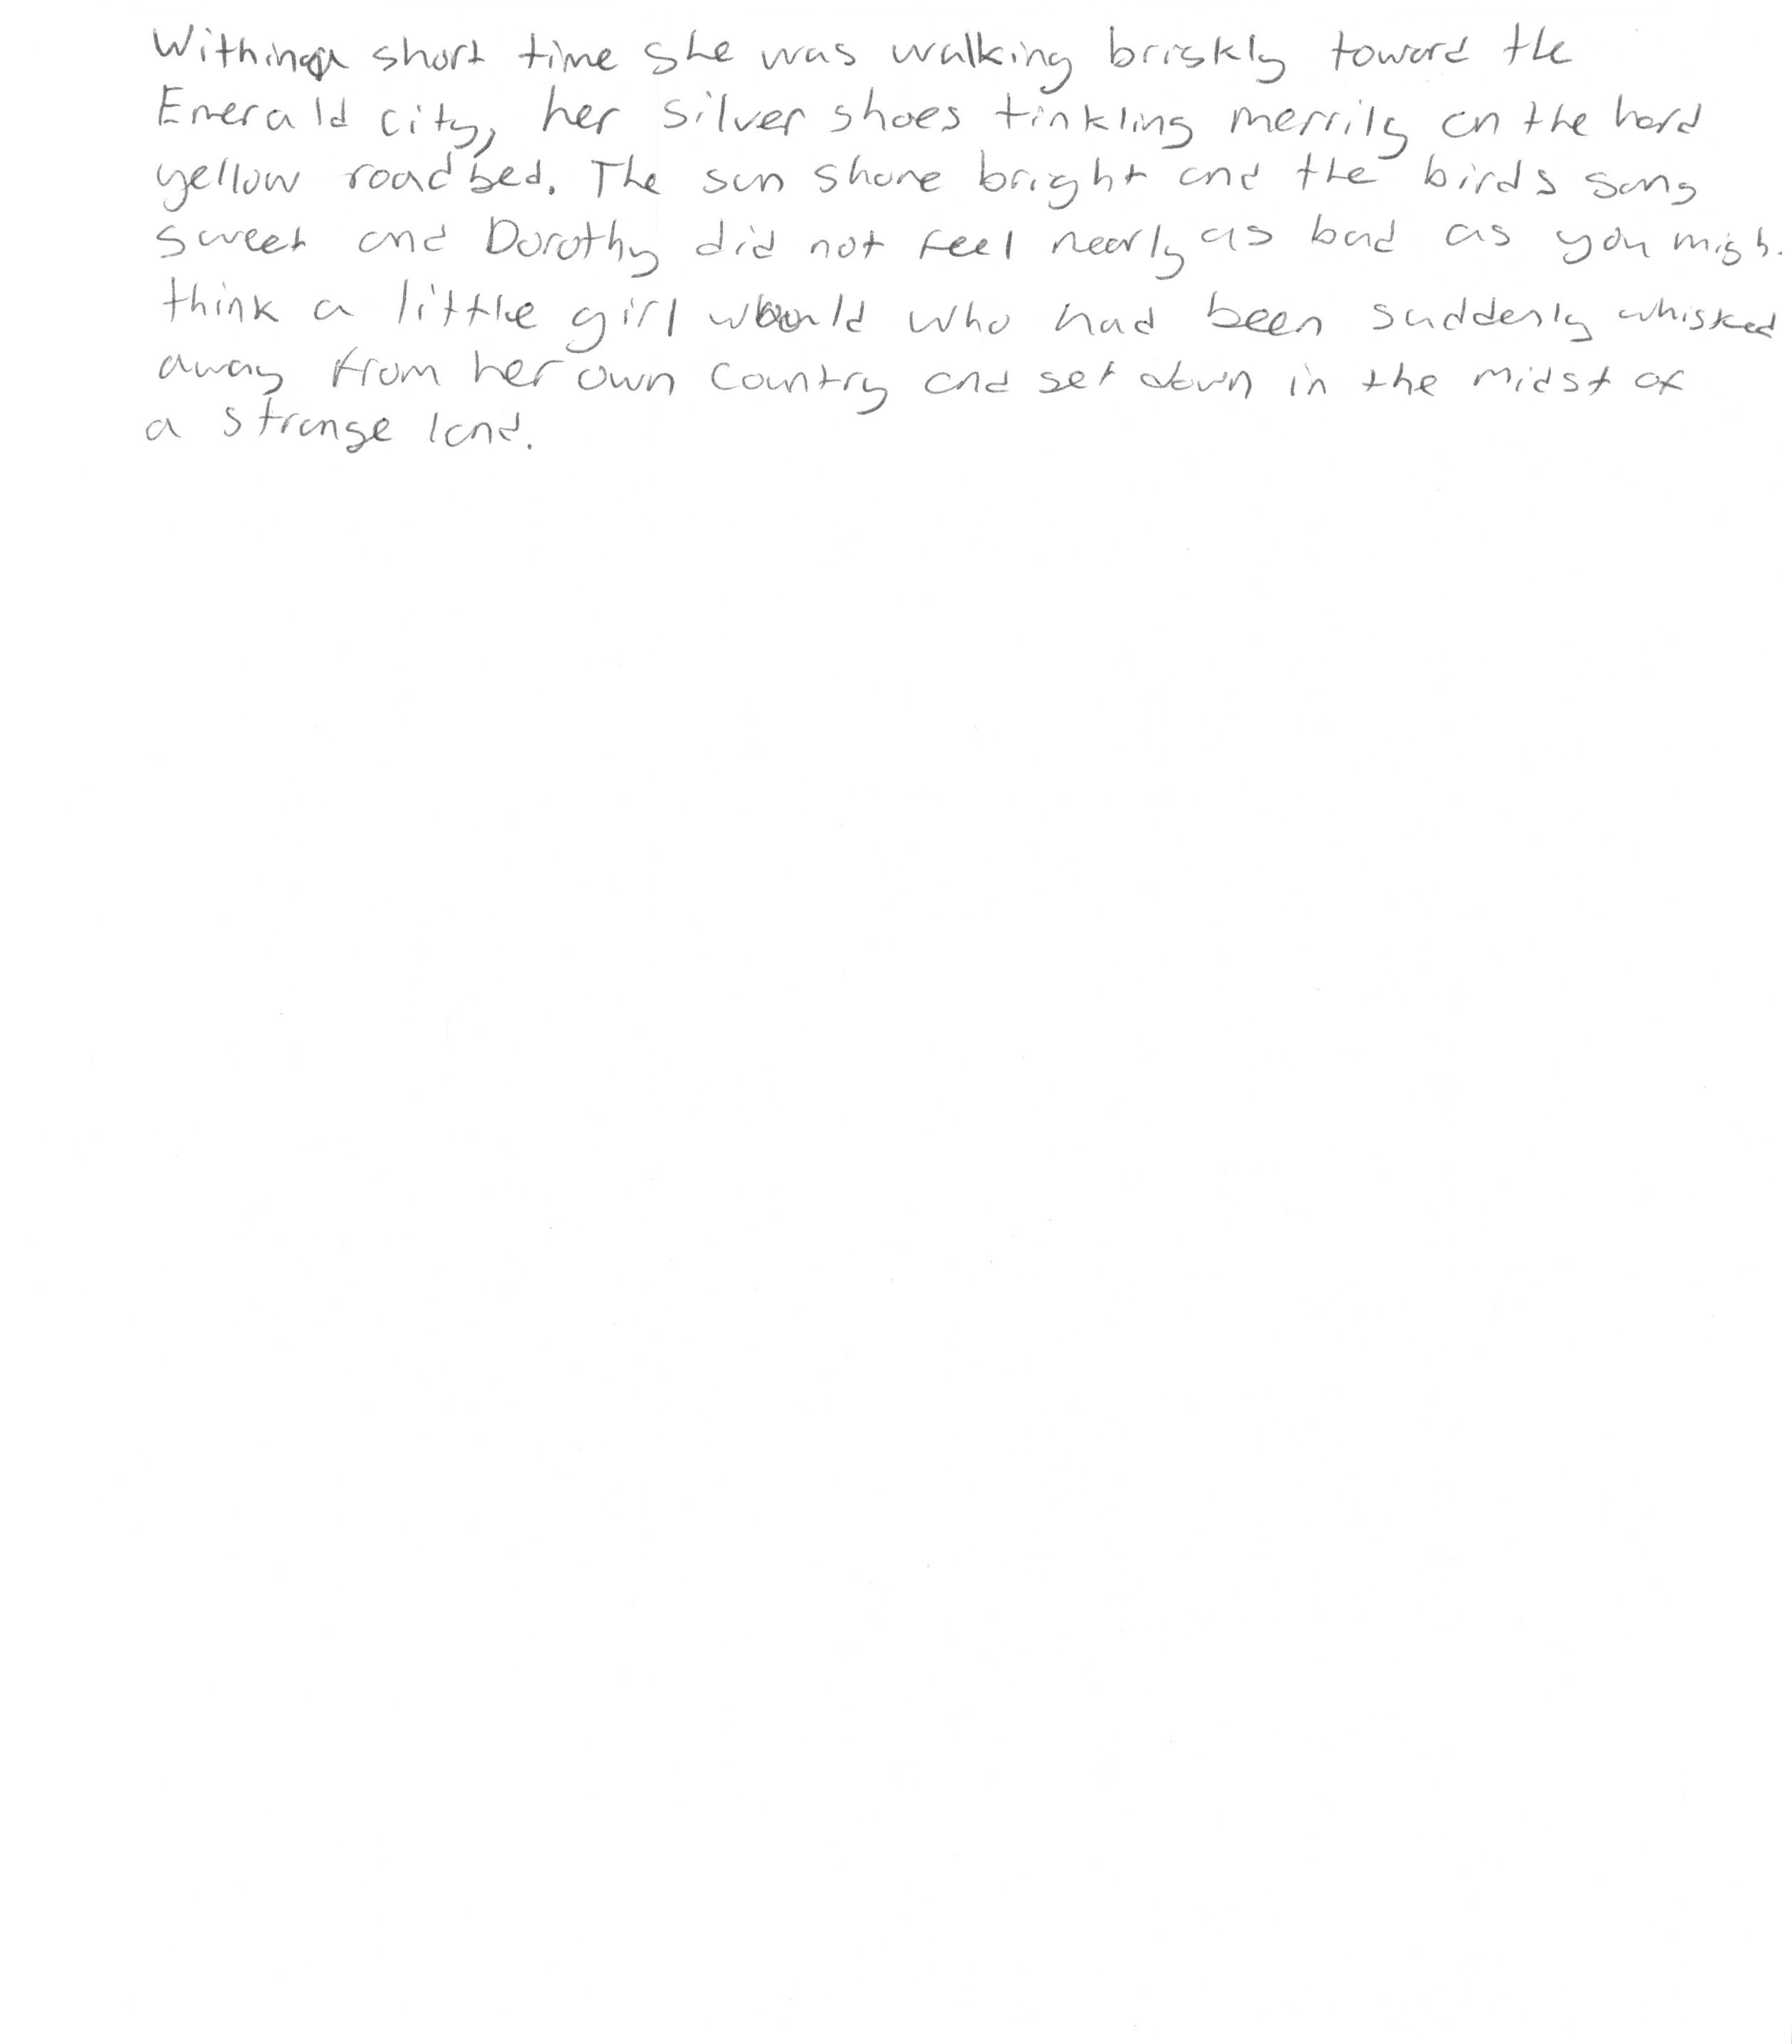 Within a short time she was walking briskly toward the
Emerald city, her silver shoes tinkling merrily on the hard
yellow road bed. The sun shone bright and the birds sang
sweet and Dorothy did not feel nearly as bad as you migh
think a little girl would who had been suddenly whisked
away from her own country and set down in the midst of
a strange land.